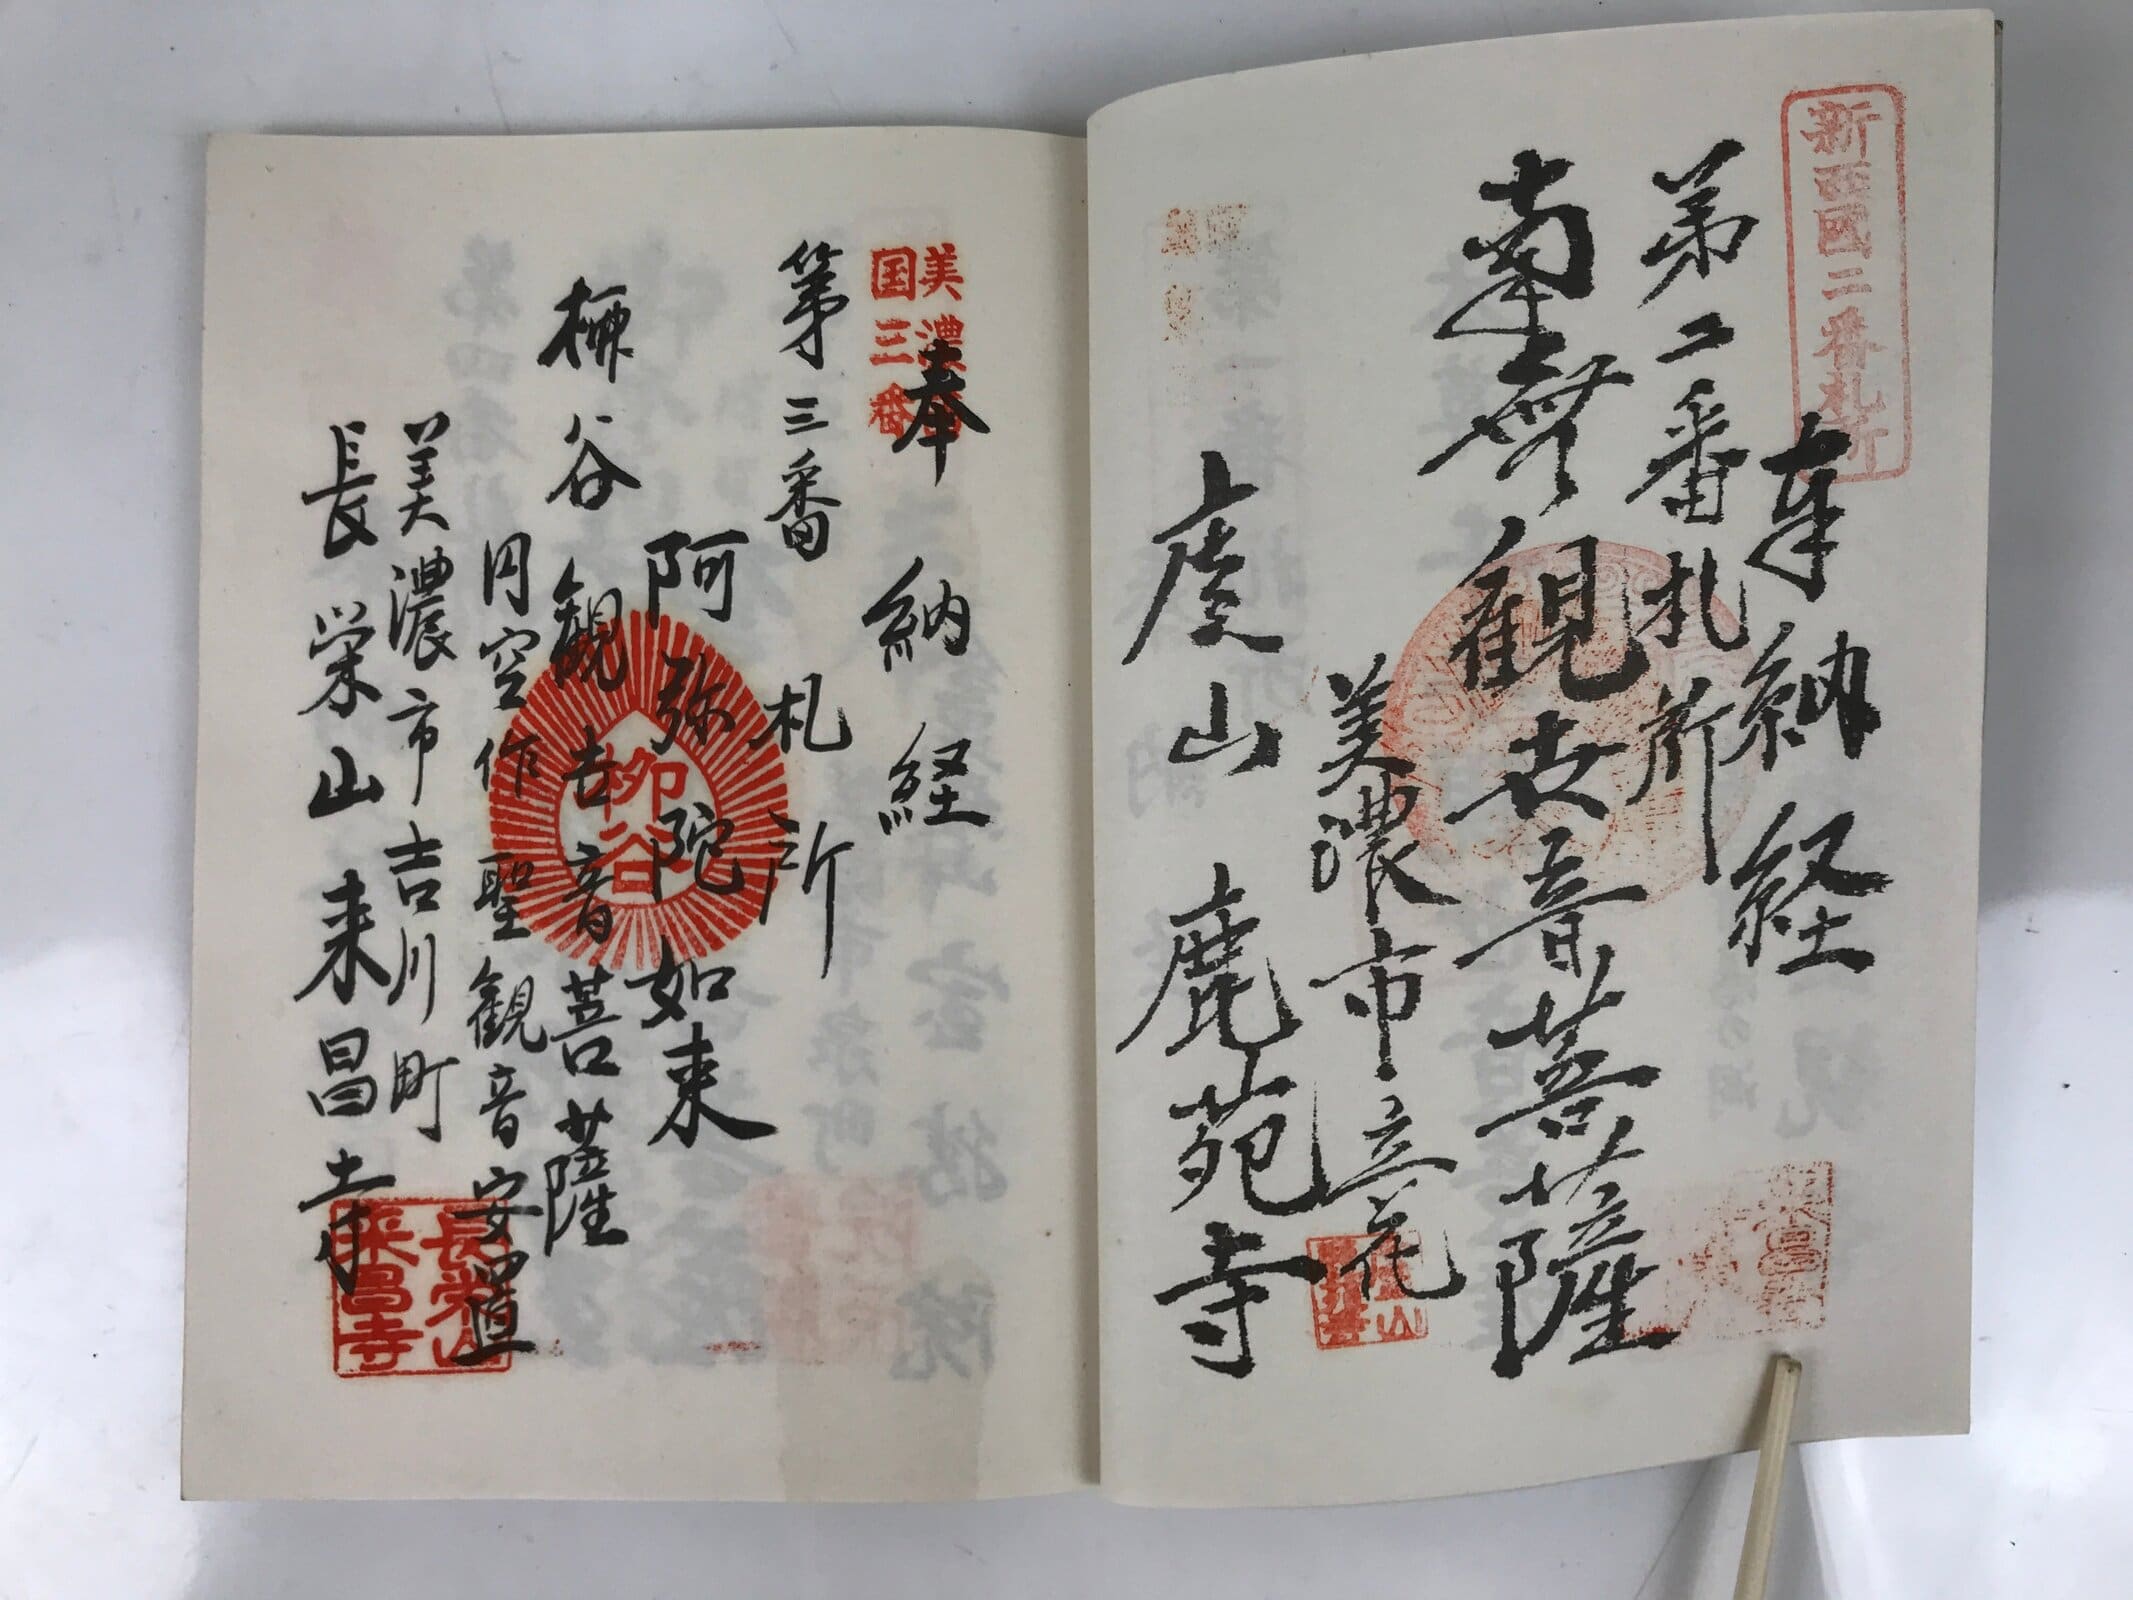 新西國二番札所
奉納経
第二番札所
南無観世音菩薩
美濃市立花
虎山 鹿苑寺
美濃西
国三番
奉納経
第三番札所
阿弥陀如来
柳谷観世音菩薩
柳谷
円空作聖観音安置
美濃市吉川町
長栄山来昌寺
長栄山
来昌寺